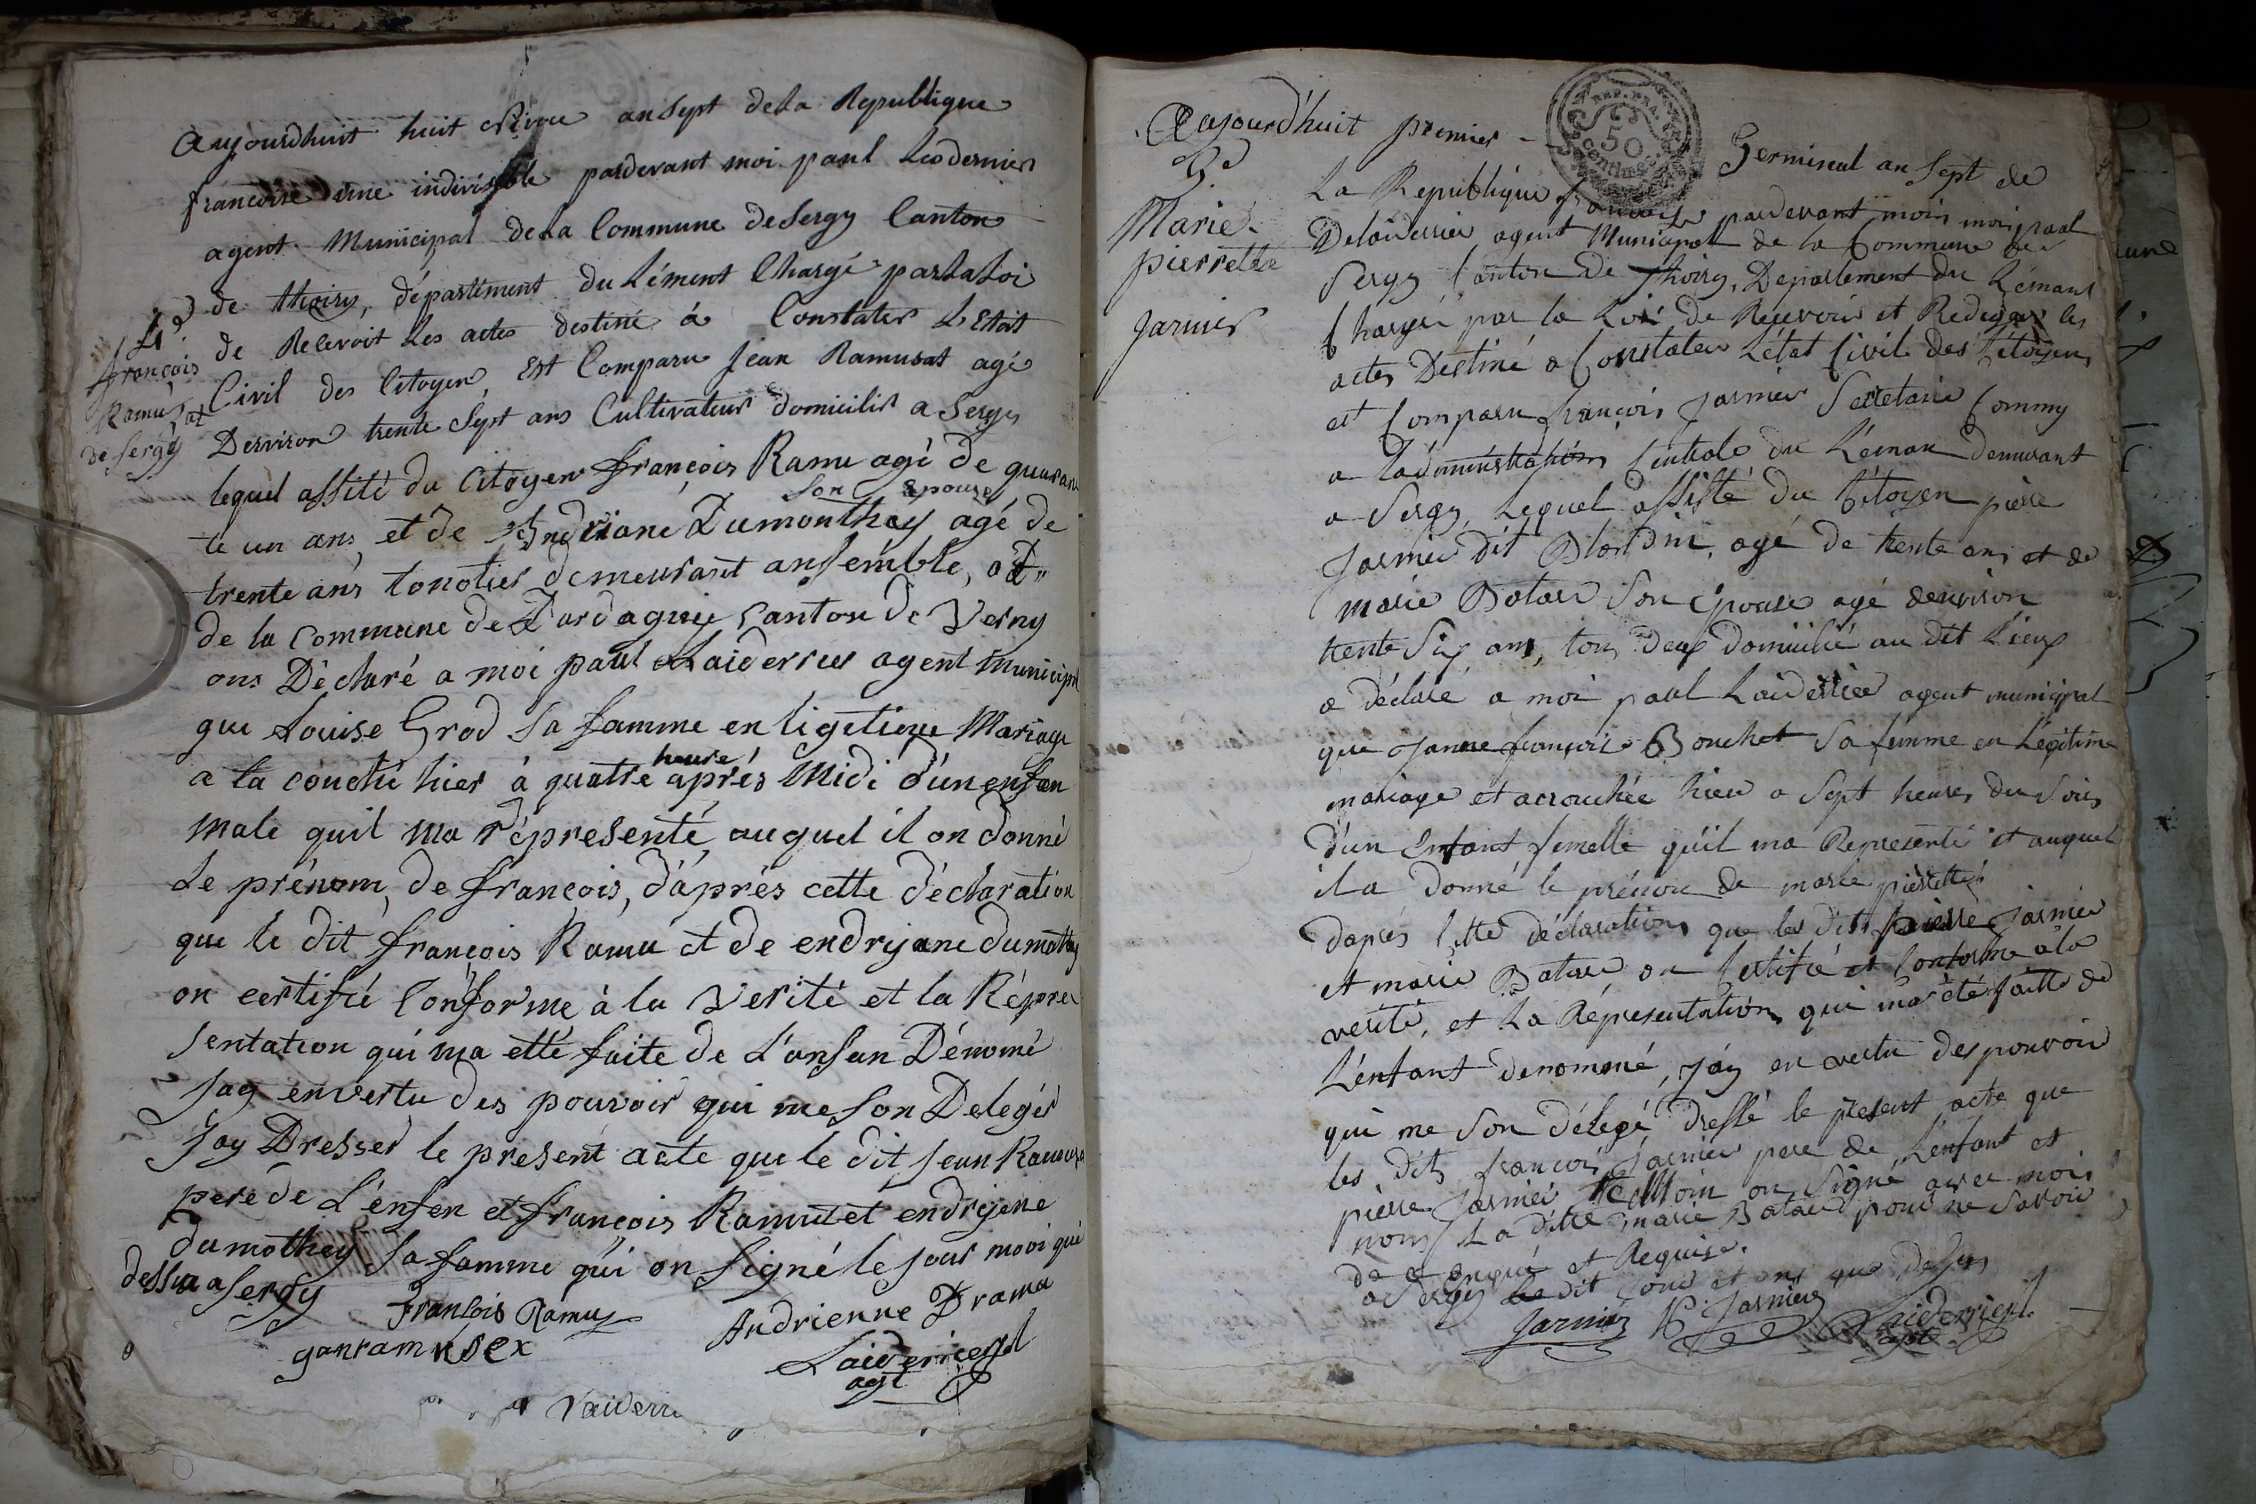 Aujourdhuit huit ansept de la Republique
francoise une indivisible pardevant moi paul Ledernier
agent Municipal de la Commune de Sergy Canton
de thoiry, département du Lément Chargé par la Loi
de Recevoit Les actes destiné à Constater L'Etat
Civil des Citoyen, Est Comparu Jean Ramusat agé
Denviron trente Sept ans Cultivateur domicilir a Sergy
4e
françois
Ramusat
de Sergy
lequel assité du Citoyen françois Ramu agé de quaran
son Epouse
te un ans, et de Andriane Dumonthay agé de
trente ans demeurant ansemble,
de la Commune de Dardagnie Canton de Verny
ons Déclaré a moi paul Laiderrier agent Municipal
que Louise Grod sa famme en ligetime Mariage
heure
a la couché hier à quatre après Midi d'un enfan
male quil ma répresenté, auquel il on donné
Le prénom, de françois, d'après cette déclaration
que le dit françois Ramu et de endrijane dumothay
on certifié Conforme à la Verité et la Répre
sentation qui ma etté faite de L'anfan Dénomé
Jay envertu des pouvoir qui me son Delegés
Jay Dresser le present acte que le dit Jean Ramusa
pere de L'enfen et françois Ramut et endrijene
dumothey Sa famme qui on Signé le Jour mooi que
dessu a Sergy
franSois Ramu
Andrienne Drama
ganramusex
Laiderrier
agt
Aujourd'huit premier Germinal an Sept de
5e
Marie
pierrette
Jarnier
La Republique françoise pardevant mois moi paul
Delaiderrier agent Municipal de la Commune de
Sergy Canton de Thoiry, Departement du Léman
Chargé par la Loi de Recevoir et Rediger les
actes Destiné a Constater L'état Civil des Citoyens
et Comparu françois Jarnier Secretaire Commy
a Ladministration Centrale du Léman demeurant
a Sergy, Lequel assisté du Citoyen pierre
Jarnier dit Blondin, agé de trente ans et de
marie Batard Son Epouse agé denviron
trente Six ans, tous deux Domicilié au dit Lieux
a déclaré a moi paul Laiderrier agent municipal
que Janne françoise Bouchet Sa femme en Légitime
mariage et accouchée hier a Sept heures du Soir
d'un Enfant femelle qu'il ma Representé et auquel
il a donné le prénom de marie pierrette
daprés Cette déclaration que les dits pierre Jarnier
et marie Batard on Certifié et Conforme à la
verité, et La Répresentation qui ma été faitte de
L'enfant denommé, J'ay en vertu des pouvoir
qui me Son délegé dressé le présent acte que
les dits françois Jarnier pere de L'enfant et
pierre Jarnier témoin on Signé avec moi
non La ditte marie Batard pour ne Savoir
de enqui et Requise.
a Sergy Le dit Jour et ans que dessus
Jarnier P. Jarnier Laiderrier
agt
REP. FRA.
50
Centimes